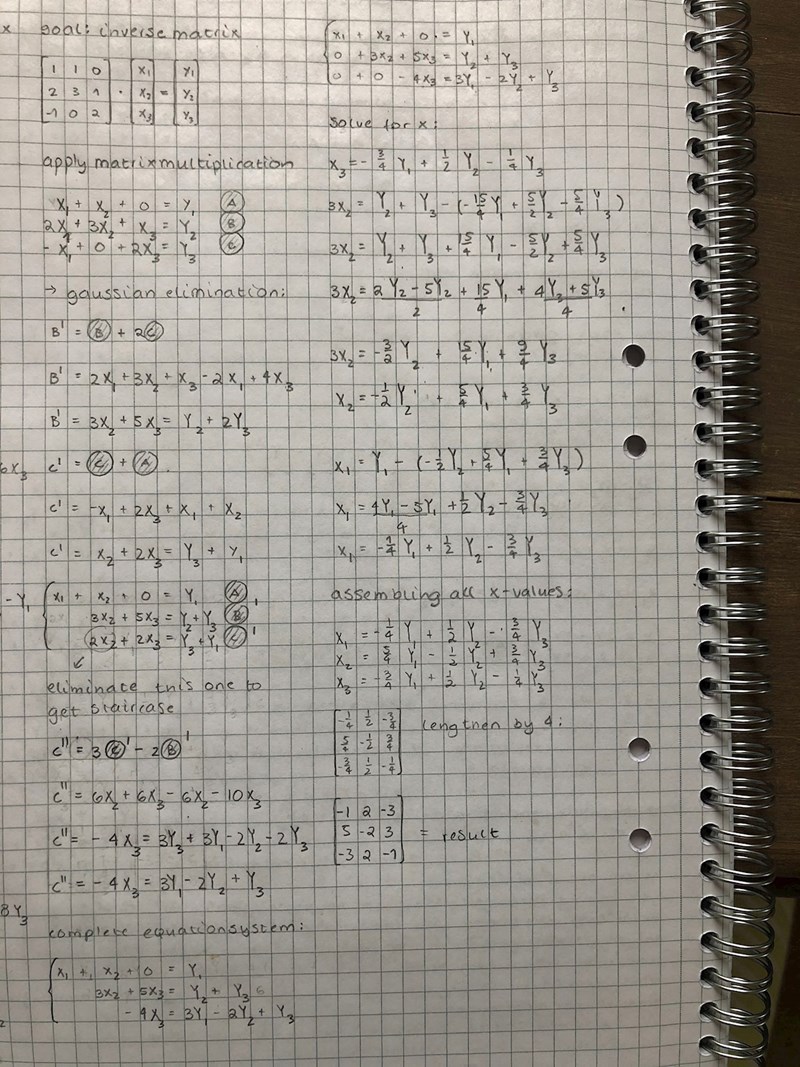 x goal: inverse matrix
[1 1 0] [x₁] [Y₁]
[2 3 1] · [x₂] = [Y₂]
[-1 0 2] [x₃] [Y₃]
apply matrixmultiplication
x₁ + x₂ + 0 = Y₁ (A)
2x₁ + 3x₂ + x₃ = Y₂ (B)
-x₁ + 0 + 2x₃ = Y₃ (C)
→ gaussian elimination:
B' = (B) + 2(C)
B' = 2x₁ + 3x₂ + x₃ - 2x₁ + 4x₃
B' = 3x₂ + 5x₃ = Y₂ + 2Y₃
6x₃ C' = (C) + (A)
C' = -x₁ + 2x₃ + x₁ + x₂
C' = x₂ + 2x₃ = Y₃ + Y₁
-Y₁ { x₁ + x₂ + 0 = Y₁ (A)
3x₂ + 5x₃ = Y₂ + Y₃ (B)'
2x₂ + 2x₃ = Y₃ + Y₁ (C)'
eliminate this one to
get staircase
C'' = 3(C)' - 2(B)'
C'' = 6x₂ + 6x₃ - 6x₂ - 10x₃
C'' = -4x₃ = 3Y₃ + 3Y₁ - 2Y₂ - 2Y₃
C'' = -4x₃ = 3Y₁ - 2Y₂ + Y₃
8Y₃
complete equationsystem:
{ x₁ + x₂ + 0 = Y₁
3x₂ + 5x₃ = Y₂ + Y₃
-4x₃ = 3Y₁ - 2Y₂ + Y₃
{ x₁ + x₂ + 0 = Y₁
0 + 3x₂ + 5x₃ = Y₂ + Y₃
0 + 0 - 4x₃ = 3Y₁ - 2Y₂ + Y₃
solve for x:
x₃ = -3/4 Y₁ + 1/2 Y₂ - 1/4 Y₃
3x₂ = Y₂ + Y₃ - (-15/4 Y₁ + 5/2 Y₂ - 5/4 Y₃)
3x₂ = Y₂ + Y₃ + 15/4 Y₁ - 5/2 Y₂ + 5/4 Y₃
3x₂ = (2Y₂ - 5Y₂)/2 + 15/4 Y₁ + (4Y₃ + 5Y₃)/4
3x₂ = -3/2 Y₂ + 15/4 Y₁ + 9/4 Y₃
x₂ = -1/2 Y₂ + 5/4 Y₁ + 3/4 Y₃
x₁ = Y₁ - (-1/2 Y₂ + 5/4 Y₁ + 3/4 Y₃)
x₁ = (4Y₁ - 5Y₁)/4 + 1/2 Y₂ - 3/4 Y₃
x₁ = -1/4 Y₁ + 1/2 Y₂ - 3/4 Y₃
assembling all x-values:
x₁ = -1/4 Y₁ + 1/2 Y₂ - 3/4 Y₃
x₂ = 5/4 Y₁ - 1/2 Y₂ + 3/4 Y₃
x₃ = -3/4 Y₁ + 1/2 Y₂ - 1/4 Y₃
[-1/4 1/2 -3/4] lengthen by 4:
[5/4 -1/2 3/4]
[-3/4 1/2 -1/4]
[-1 2 -3]
[5 -2 3] = result
[-3 2 -1]